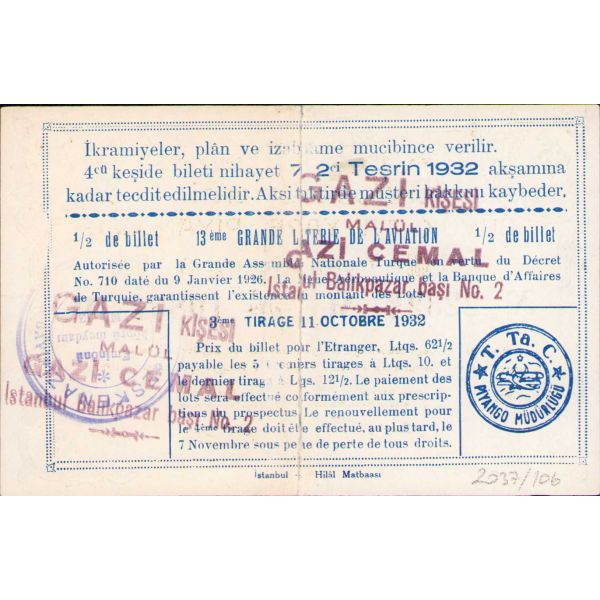 İkramiyeler, plân ve izahname mucibince verilir.
4cü keşide bileti nihayet 7 2ci Teşrin 1932 akşamına
kadar tecdit edilmelidir. Aksi taktirde müşteri hakkını kaybeder.
1/2 de billet 13ème GRANDE LOTERIE DE L'AVIATION 1/2 de billet
Autorisée par la Grande Assemblée Nationale Turque en vertu du Décret
No. 710 daté du 9 Janvier 1926. La Ligue Aéronautique et la Banque d'Affaires
de Turquie, garantissent l'existence du montant des Lots.
3ème TIRAGE 11 OCTOBRE 1932
Prix du billet pour l'Etranger, Ltqs. 62 1/2
payable les 5 premiers tirages à Ltqs. 10. et
le dernier tirage à Ltqs. 12 1/2. Le paiement des
lots sera effectué conformement aux prescrip-
tions du prospectus. Le renouvellement pour
le 4ème tirage doit être effectué, au plus tard, le
7 Novembre sous peine de perte de tous droits.
T. Ta. C.
PİYANGO MÜDÜRLÜĞÜ
İstanbul - Hilâl Matbaası
GAZİ KİŞESİ
MALÜL
GAZİ CEMAL
İstanbul Balıkpazar başı No. 2
GAZİ KİŞESİ
MALÜL
GAZİ CEMAL
İstanbul Balıkpazar başı No. 2
2037/106